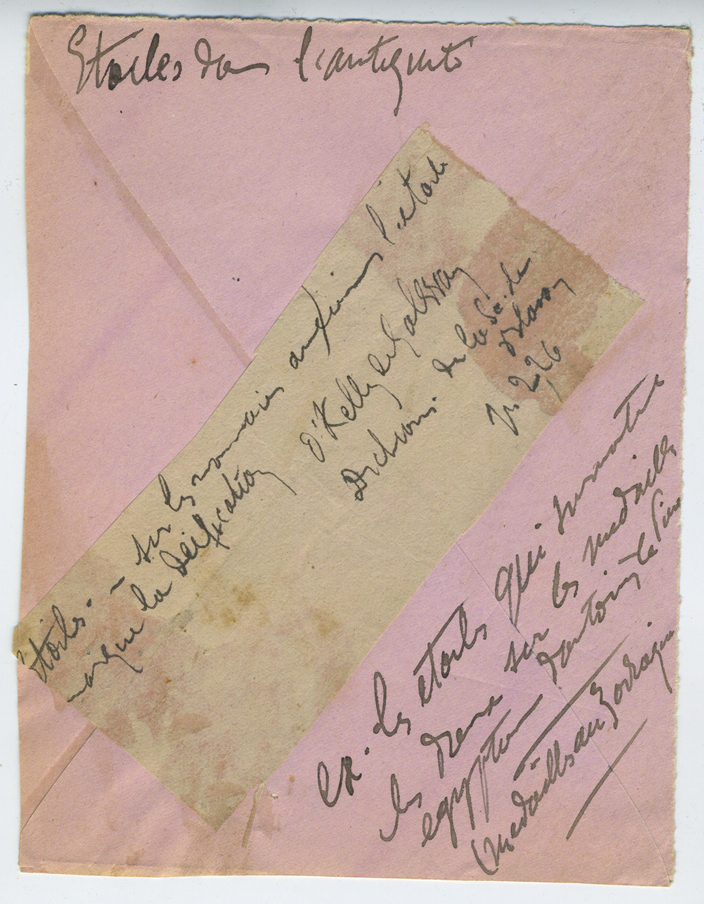 Etoiles dans l'antiquité
Etoiles. – sur les monnaies anciennes l'étoile
marque la Déification
O'Kelly de Galway
Dictionn. de la Sc. du
Blason
p. 226
ex. les étoiles qui surmontent
les dieux sur les médailles
egyptiennes d'Antonin le Pieux
(médailles au Zodiaque